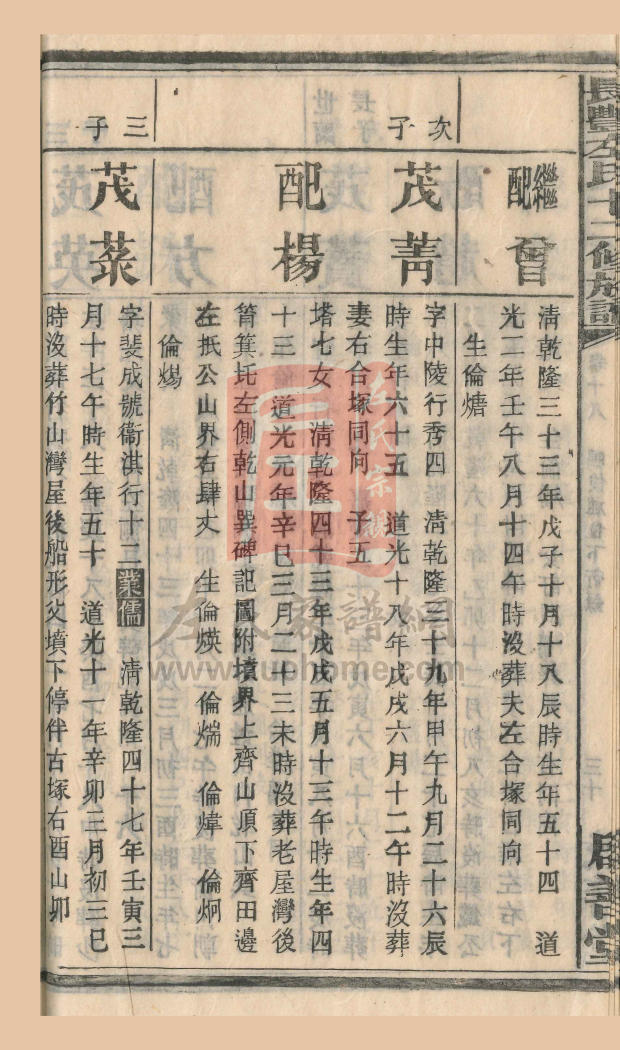 長豐左氏十二修族譜
卷十八
三十
啟善堂
繼配曾
清乾隆三十三年戊子十月十八辰時生年五十四 道
光二年壬午八月十四午時沒葬夫左合塚同向
生倫熖
次子
茂菁
字中陵行秀四 清乾隆三十九年甲午九月二十六辰
時生年六十五 道光十八年戊戌六月十二午時沒葬
妻右合塚同向 子五
配楊
塔七女 清乾隆四十三年戊戌五月十三午時生年四
十三 道光元年辛巳三月二十三未時沒葬老屋灣後
筲箕坵左側乾山巽碑記圖附墳界上齊山頂下齊田邊
左抵公山界右肆丈 生倫煐 倫煓 倫煒 倫炯
倫煬
三子
茂菜
字斐成號衞淇行十二業儒 清乾隆四十七年壬寅三
月十七午時生年五十 道光十一年辛卯三月初三巳
時沒葬竹山灣屋後船形父墳下停伴古塚右酉山卯
左氏宗親
左氏族譜網
www.zuohome.com